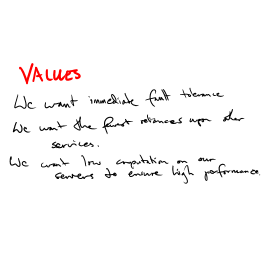 VALUES
We want immediate fault tolerance
We want the fewest reliances upon other
services.
We want low computation on our
servers to ensure high performance.